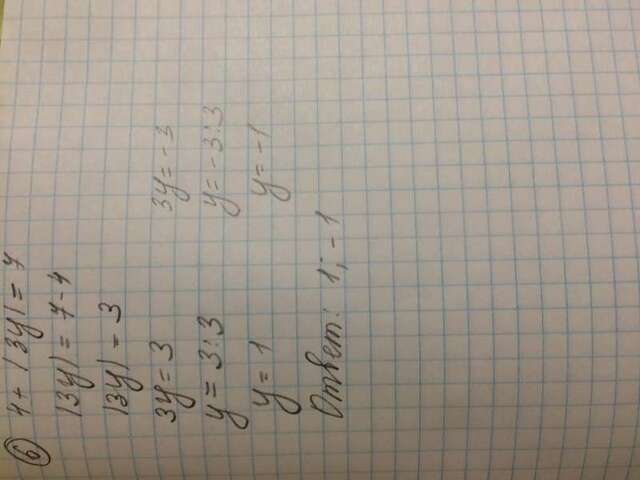 6 4 + |3y| = 7
|3y| = 7 - 4
|3y| - 3
3y = 3 3y = -3
y = 3:3 y = -3:3
y = 1 y = -1
Ответ: 1; -1